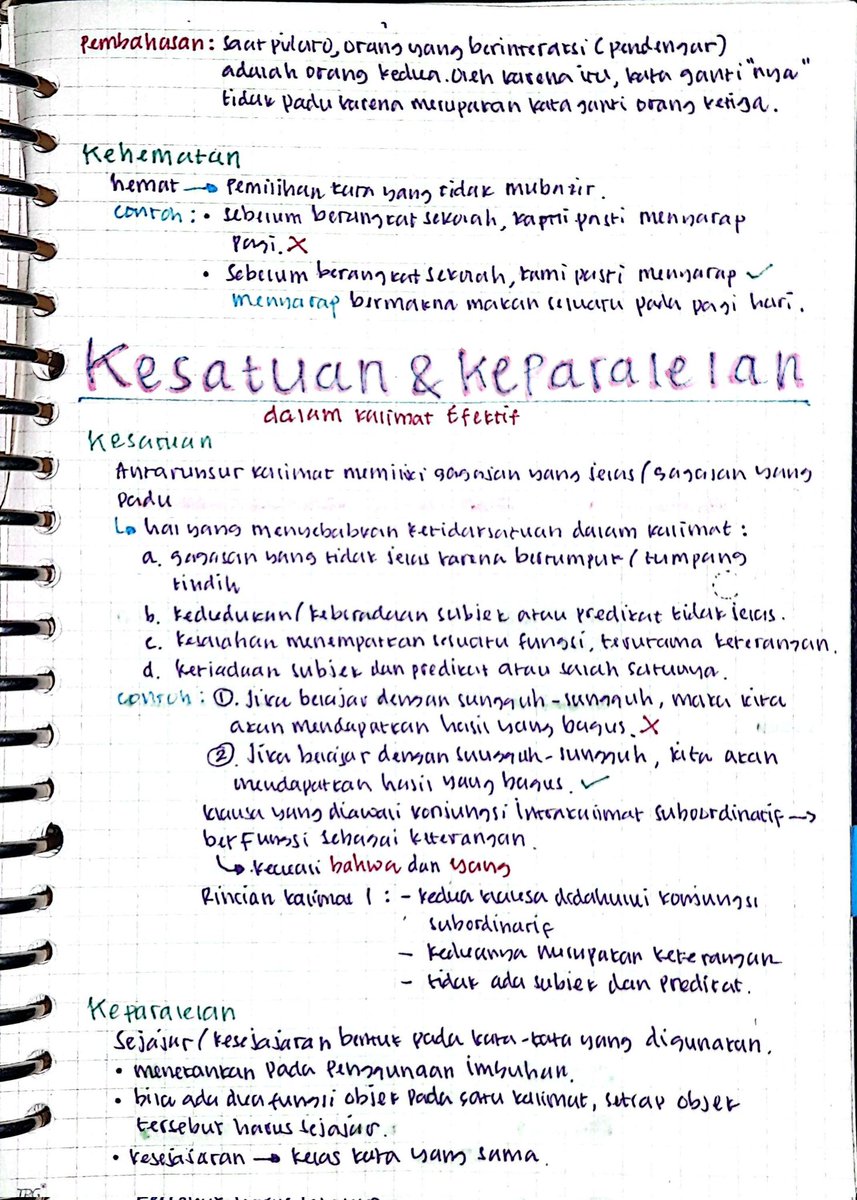 Pembahasan : saat pidato, orang yang berinteraksi (pendengar)
adalah orang kedua. Oleh karena itu, kata ganti "nya"
tidak padu karena merupakan kata ganti orang ketiga.
Kehematan
hemat → Pemilihan kata yang tidak mubazir.
contoh : • sebelum berangkat sekolah, kami pasti menyarap
pagi. ✗
• Sebelum berangkat sekolah, kami pasti menyarap ✓
menyarap bermakna makan sesuatu pada pagi hari.
Kesatuan & Keparalelan
dalam kalimat Efektif
Kesatuan
Antarunsur kalimat memiliki gagasan yang jelas / gagasan yang
padu
↳ hal yang menyebabkan ketidaksatuan dalam kalimat :
a. gagasan yang tidak jelas karena bertumpuk / tumpang
tindih
b. kedudukan / keberadaan subjek atau predikat tidak jelas.
c. kesalahan menempatkan sesuatu fungsi, terutama keterangan.
d. ketiadaan subjek dan predikat atau salah satunya.
contoh : ①. Jika belajar dengan sungguh-sungguh, maka kita
akan mendapatkan hasil yang bagus. ✗
②. Jika belajar dengan sungguh-sungguh, kita akan
mendapatkan hasil yang bagus. ✓
klausa yang diawali konjungsi intrakalimat subordinatif →
berfungsi sebagai keterangan.
↳ kecuali bahwa dan yang
Rincian kalimat 1 : - kedua klausa didahului konjungsi
subordinatif
- keduanya merupakan keterangan
- tidak ada subjek dan predikat.
Keparalelan
Sejajar / kesejajaran bentuk pada kata-kata yang digunakan.
• menekankan pada penggunaan imbuhan.
• bila ada dua fungsi objek pada satu kalimat, setiap objek
tersebut harus sejajar.
• kesejajaran → kelas kata yang sama.